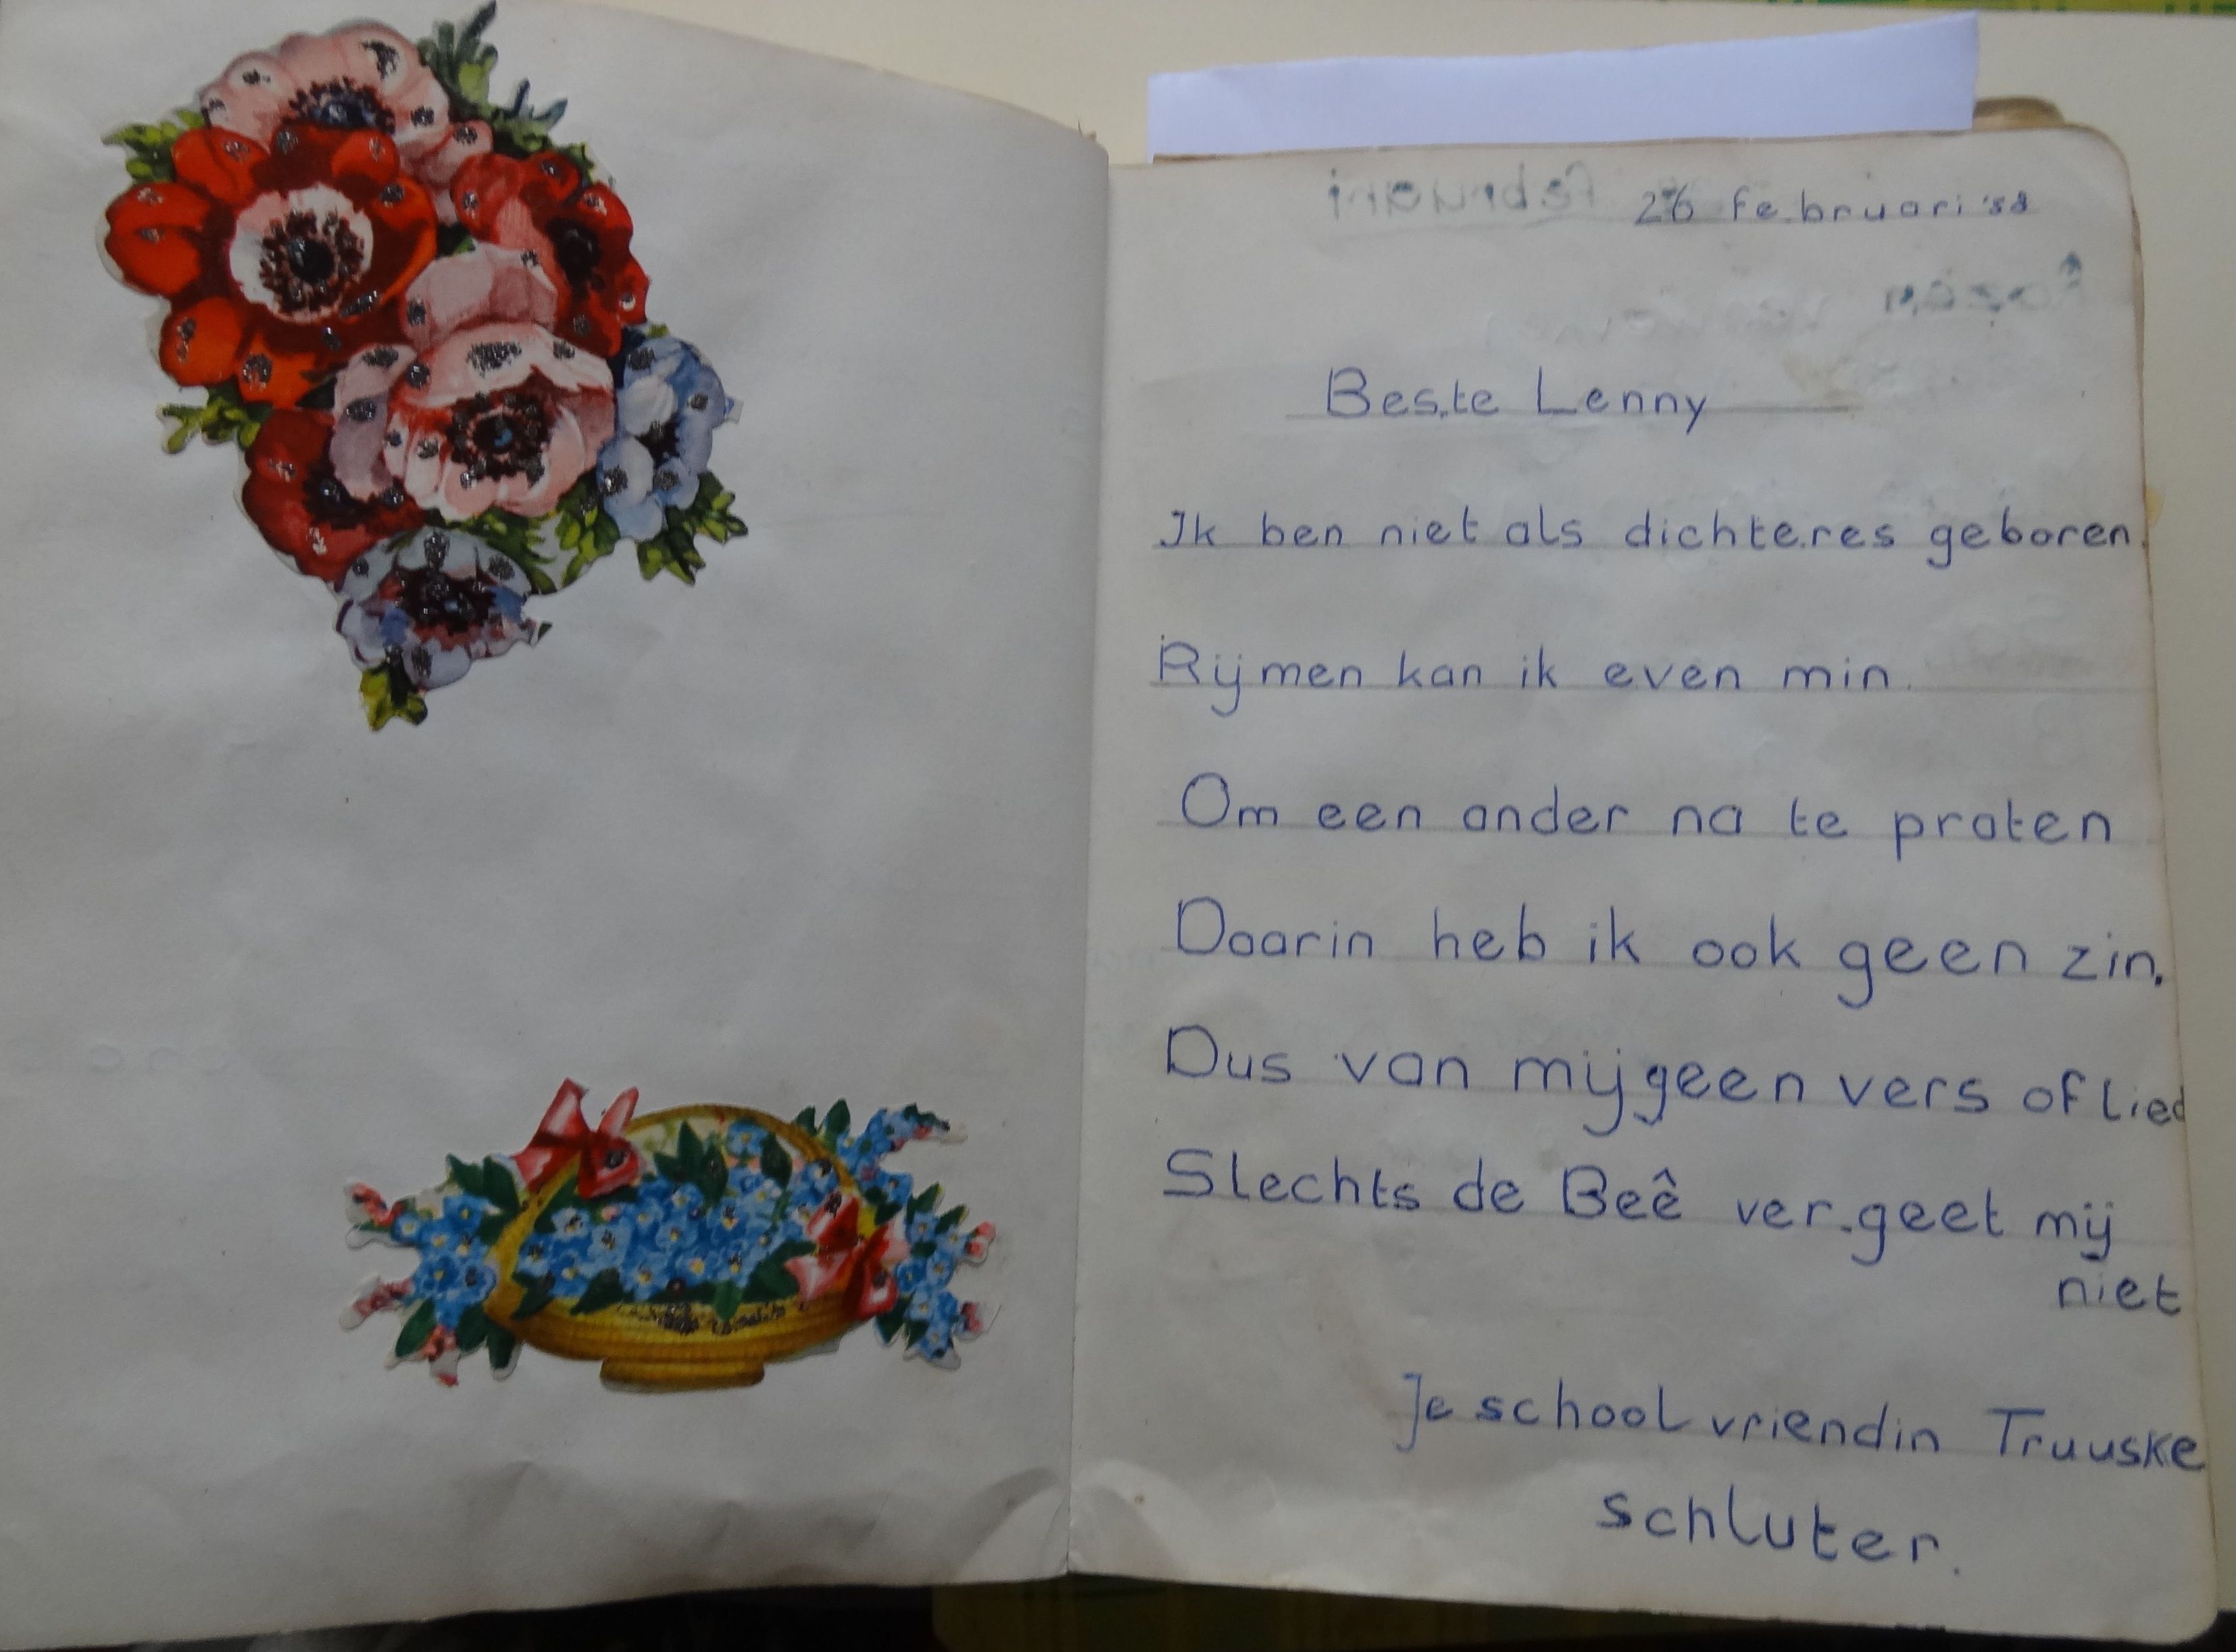 26 februari '58
Beste Lenny
Ik ben niet als dichteres geboren.
Rijmen kan ik even min.
Om een ander na te praten
Daarin heb ik ook geen zin.
Dus van mij geen vers of lied
Slechts de Beê ver-geet mij
niet
Je school vriendin Truuske
schluter.